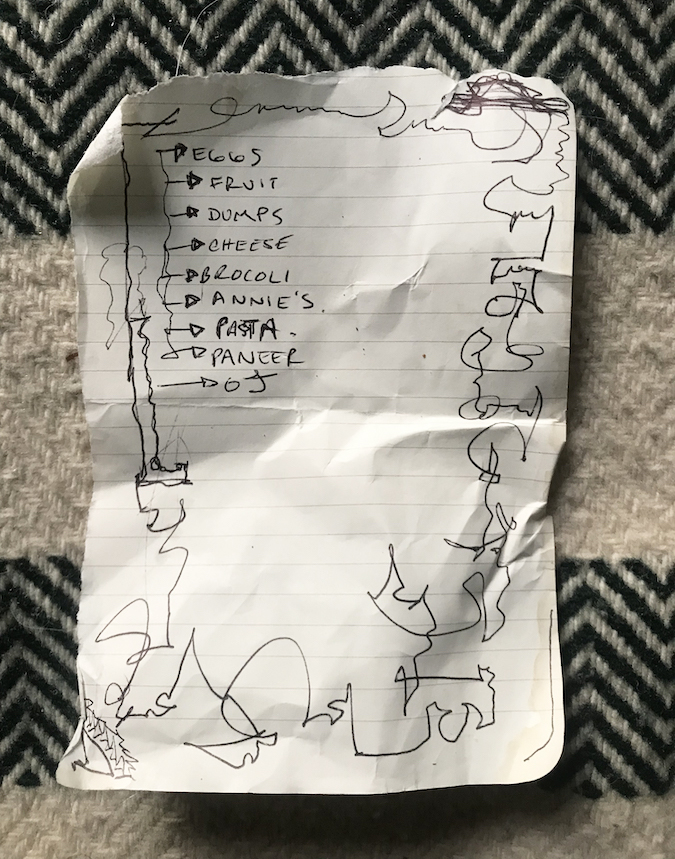 EGGS
FRUIT
DUMPS
CHEESE
BROCOLI
ANNIE'S.
PASTA.
PANEER
OJ